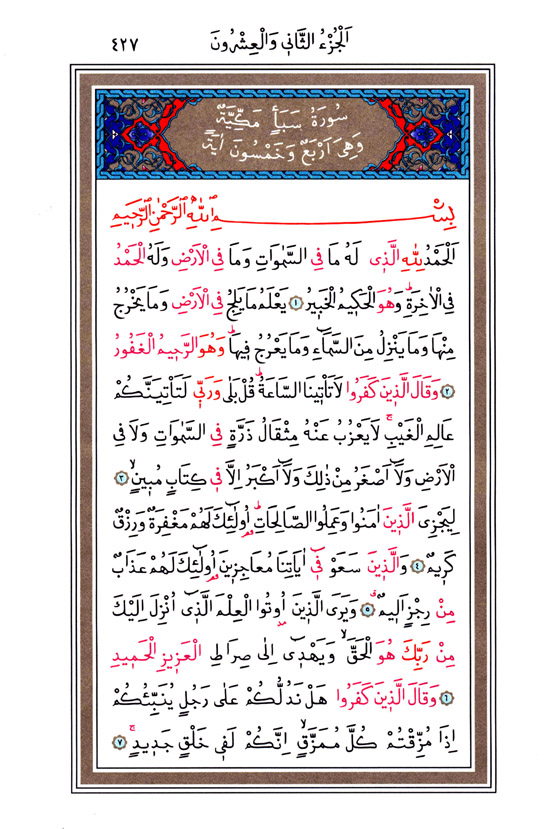 اَلْجُزْءُ الثَّانٖي وَالْعِشْرُونَ ٤٢٧
سُورَةُ سَبَأٍ مَكِّيَّةٌ
وَهِيَ اَرْبَعٌ وَخَمْسُونَ اٰيَةً
بِسْمِ اللّٰهِ الرَّحْمٰنِ الرَّحٖيمِ
اَلْحَمْدُ لِلّٰهِ الَّذٖي لَهُ مَا فِي السَّمٰوَاتِ وَمَا فِي الْاَرْضِ وَلَهُ الْحَمْدُ
فِي الْاٰخِرَةِۜ وَهُوَ الْحَكٖيمُ الْخَبٖيرُ ﴿١﴾ يَعْلَمُ مَا يَلِجُ فِي الْاَرْضِ وَمَا يَخْرُجُ
مِنْهَا وَمَا يَنْزِلُ مِنَ السَّمَٓاءِ وَمَا يَعْرُجُ فٖيهَاۜ وَهُوَ الرَّحٖيمُ الْغَفُورُ
﴿٢﴾ وَقَالَ الَّذٖينَ كَفَرُوا لَا تَأْتٖينَا السَّاعَةُۜ قُلْ بَلٰى وَرَبّٖي لَتَأْتِيَنَّكُمْ
عَالِمِ الْغَيْبِۚ لَا يَعْزُبُ عَنْهُ مِثْقَالُ ذَرَّةٍ فِي السَّمٰوَاتِ وَلَا فِي
الْاَرْضِ وَلَٓا اَصْغَرُ مِنْ ذٰلِكَ وَلَٓا اَكْبَرُ اِلَّا فٖي كِتَابٍ مُبٖينٍۙ ﴿٣﴾
لِيَجْزِيَ الَّذٖينَ اٰمَنُوا وَعَمِلُوا الصَّالِحَاتِۜ اُو۬لٰٓئِكَ لَهُمْ مَغْفِرَةٌ وَرِزْقٌ
كَرٖيمٌ ﴿٤﴾ وَالَّذٖينَ سَعَوْ فٖٓي اٰيَاتِنَا مُعَاجِزٖينَ اُو۬لٰٓئِكَ لَهُمْ عَذَابٌ
مِنْ رِجْزٍ اَلٖيمٌ ﴿٥﴾ وَيَرَى الَّذٖينَ اُو۫تُوا الْعِلْمَ الَّذٖٓي اُنْزِلَ اِلَيْكَ
مِنْ رَبِّكَ هُوَ الْحَقَّۙ وَيَهْدٖٓي اِلٰى صِرَاطِ الْعَزٖيزِ الْحَمٖيدِ
﴿٦﴾ وَقَالَ الَّذٖينَ كَفَرُوا هَلْ نَدُلُّكُمْ عَلٰى رَجُلٍ يُنَبِّئُكُمْ
اِذَا مُزِّقْتُمْ كُلَّ مُمَزَّقٍۙ اِنَّكُمْ لَفٖي خَلْقٍ جَدٖيدٍۚ ﴿٧﴾